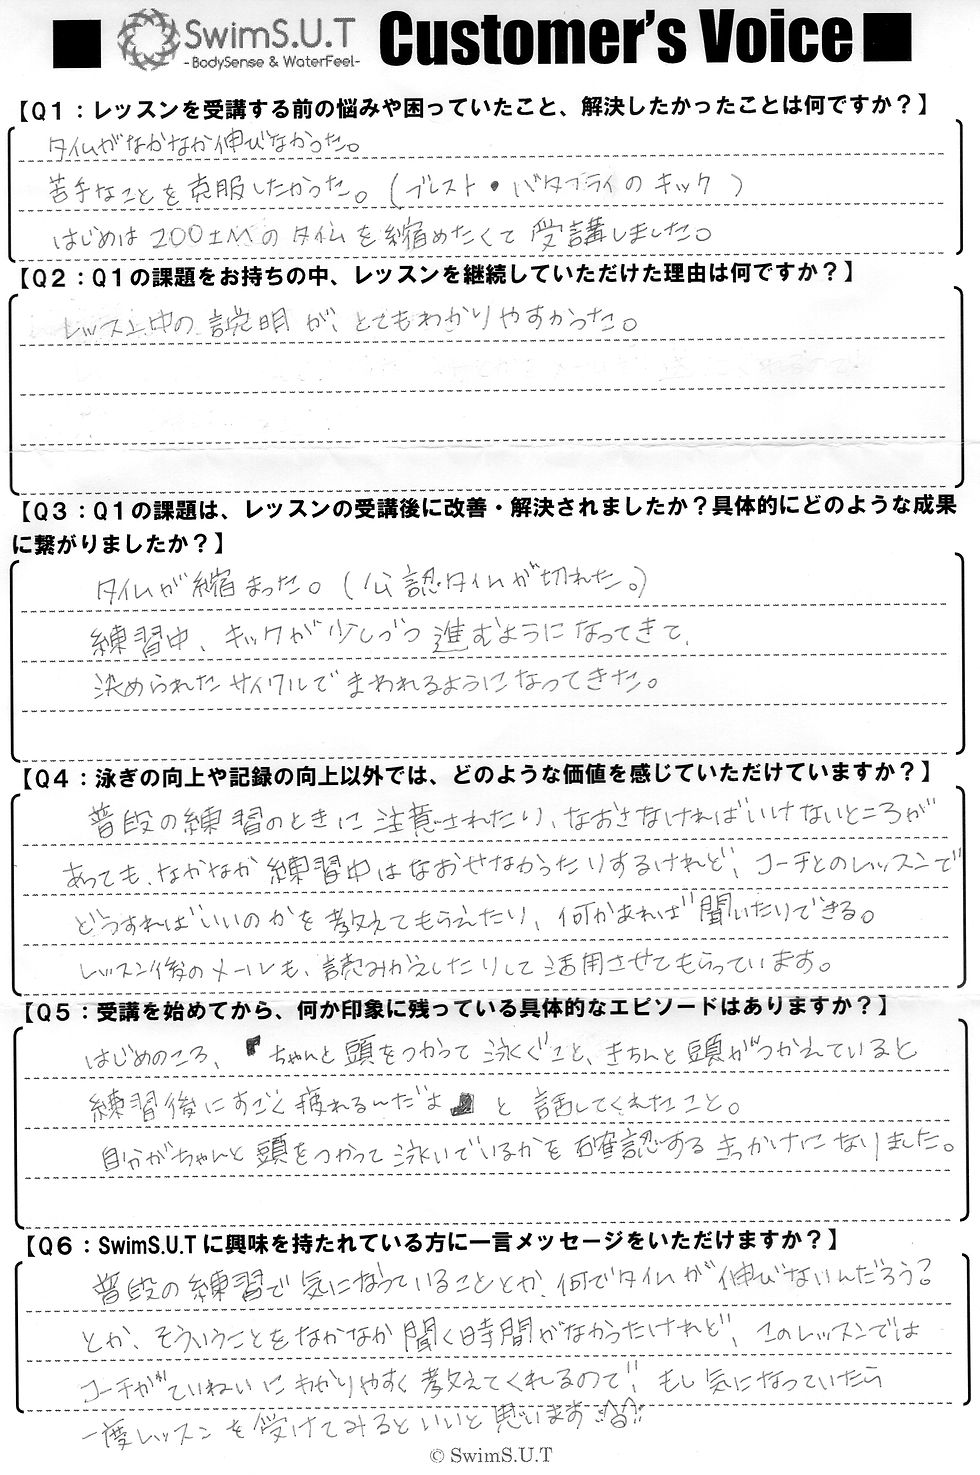 SwimS.U.T
-BodySense & WaterFeel-
Customer's Voice
【Q1：レッスンを受講する前の悩みや困っていたこと、解決したかったことは何ですか？】
タイムがなかなか伸びなかった。
苦手なことを克服したかった。(ブレスト・バタフライのキック)
はじめは200IMのタイムを縮めたくて受講しました。
【Q2：Q1の課題をお持ちの中、レッスンを継続していただけた理由は何ですか？】
レッスン中の説明が、とてもわかりやすかった。
【Q3：Q1の課題は、レッスンの受講後に改善・解決されましたか？具体的にどのような成果
に繋がりましたか？】
タイムが縮まった。(公認タイムが切れた。)
練習中、キックが少しづつ進むようになってきて、
決められたサイクルでまわれるようになってきた。
【Q4：泳ぎの向上や記録の向上以外では、どのような価値を感じていただけていますか？】
普段の練習のときに注意されたり、なおさなければいけないところが
あっても、なかなか練習中はなおせなかったりするけれど、コーチとのレッスンで
どうすればいいのかを教えてもらえたり、何かあれば聞いたりできる。
レッスン後のメールも、読みかえしたりして活用させてもらっています。
【Q5：受講を始めてから、何か印象に残っている具体的なエピソードはありますか？】
はじめのころ、『ちゃんと頭をつかって泳ぐこと、きちんと頭がつかえていると
練習後にすごく疲れるんだよ』と話してくれたこと。
自分がちゃんと頭をつかって泳いでいるかを確認するきっかけになりました。
【Q6：SwimS.U.Tに興味を持たれている方に一言メッセージをいただけますか？】
普段の練習で気になっていることとか、何でタイムが伸びないんだろう？
とか、そういうことをなかなか聞く時間がなかったけれど、このレッスンでは
コーチがていねいにわかりやすく教えてくれるので、もし気になっていたら
一度レッスンを受けてみるといいと思います
© SwimS.U.T